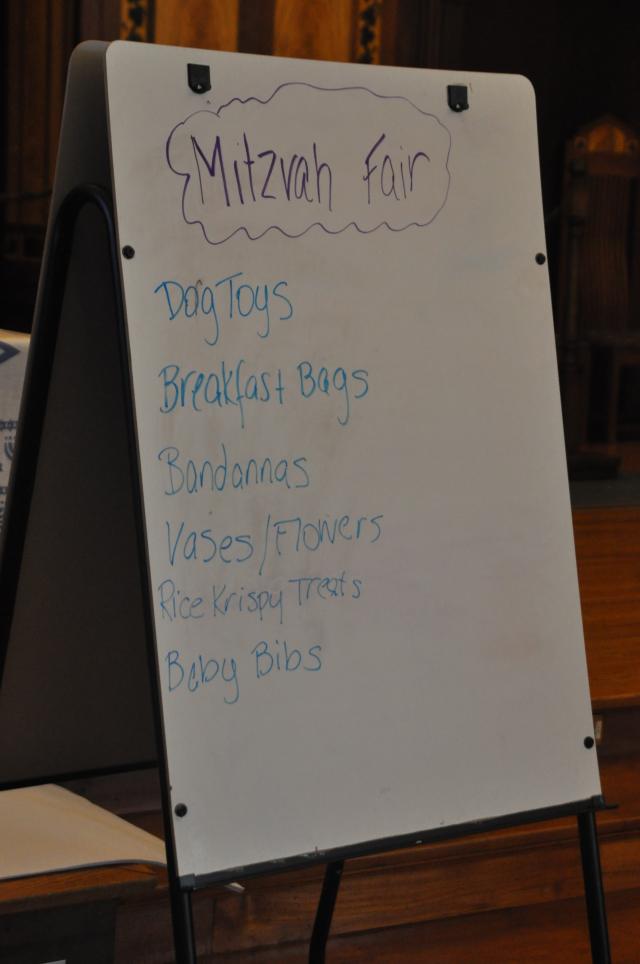 Mitzvah Fair
Dog Toys
Breakfast Bags
Bandannas
Vases/Flowers
Rice Krispy Treats
Baby Bibs